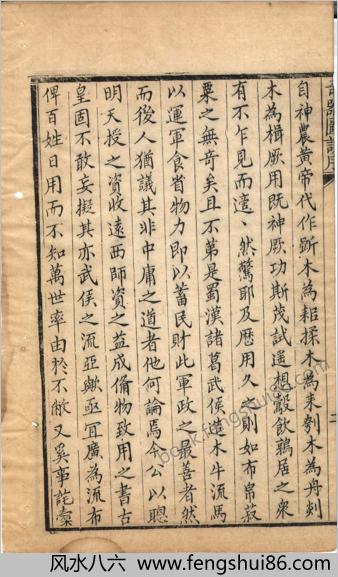 自神農黃帝代作斲木為耜揉木為耒刳木為舟剡
木為楫厥用既神厥功斯茂試遥想鷇飲鶉居之衆
有不乍見而然驚耶及歷用久之則如布帛菽
粟之無竒矣且不第是蜀漢諸葛武侯造木牛流馬
以運軍食省物力即以蓄民財此軍政之最善者然
而後人猶議其非中庸之道者他何論焉今公以聰
明天授之資收遠西師資之益成俻物致用之書古
皇固不敢妄擬其亦武侯之流亞歟亟冝廣為流布
俾百姓日用而不知萬世率由於不敝又奚事詫
二
book.fengshui86.com
风水八六 www.fengshui86.com